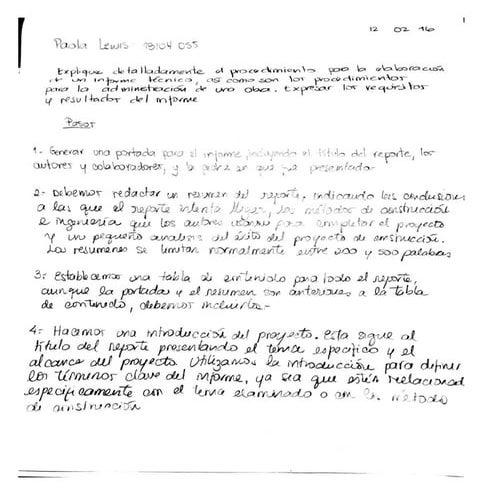 12 02 16
Paola Lewis 18104 055
Explique detalladamente el procedimiento para la elaboración
de un informe técnico, así como son los procedimientos
para la administración de una obra. Expresar los requisitos
y resultados del informe
Pasos
1- Generar una portada para el informe, incluyendo el título del reporte, los
autores y colaboradores, y la fecha en que fue presentado-
2- Debemos redactar un resumen del reporte, indicando las conclusiones
a las que el reporte intenta llegar, los métodos de construcción
e ingeniería que los autores usaron para completar el proyecto
y un pequeño analisis del éxito del proyecto de construcción.
Los resumenes se limitan normalmente entre 200 y 500 palabras
3- Establecemos una tabla de contenido para todo el reporte,
aunque la portada y el resumen son anteriores a la tabla
de contenido, debemos incluirlos-
4- Hacemos una introducción del proyecto. Esta sigue al
título del reporte presentando el tema específico y el
alcance del proyecto. Utilizamos la introducción para definir
los términos clave del informe, ya sea que estén relacionad
específicamente con el tema examinado o con el método
de construcción